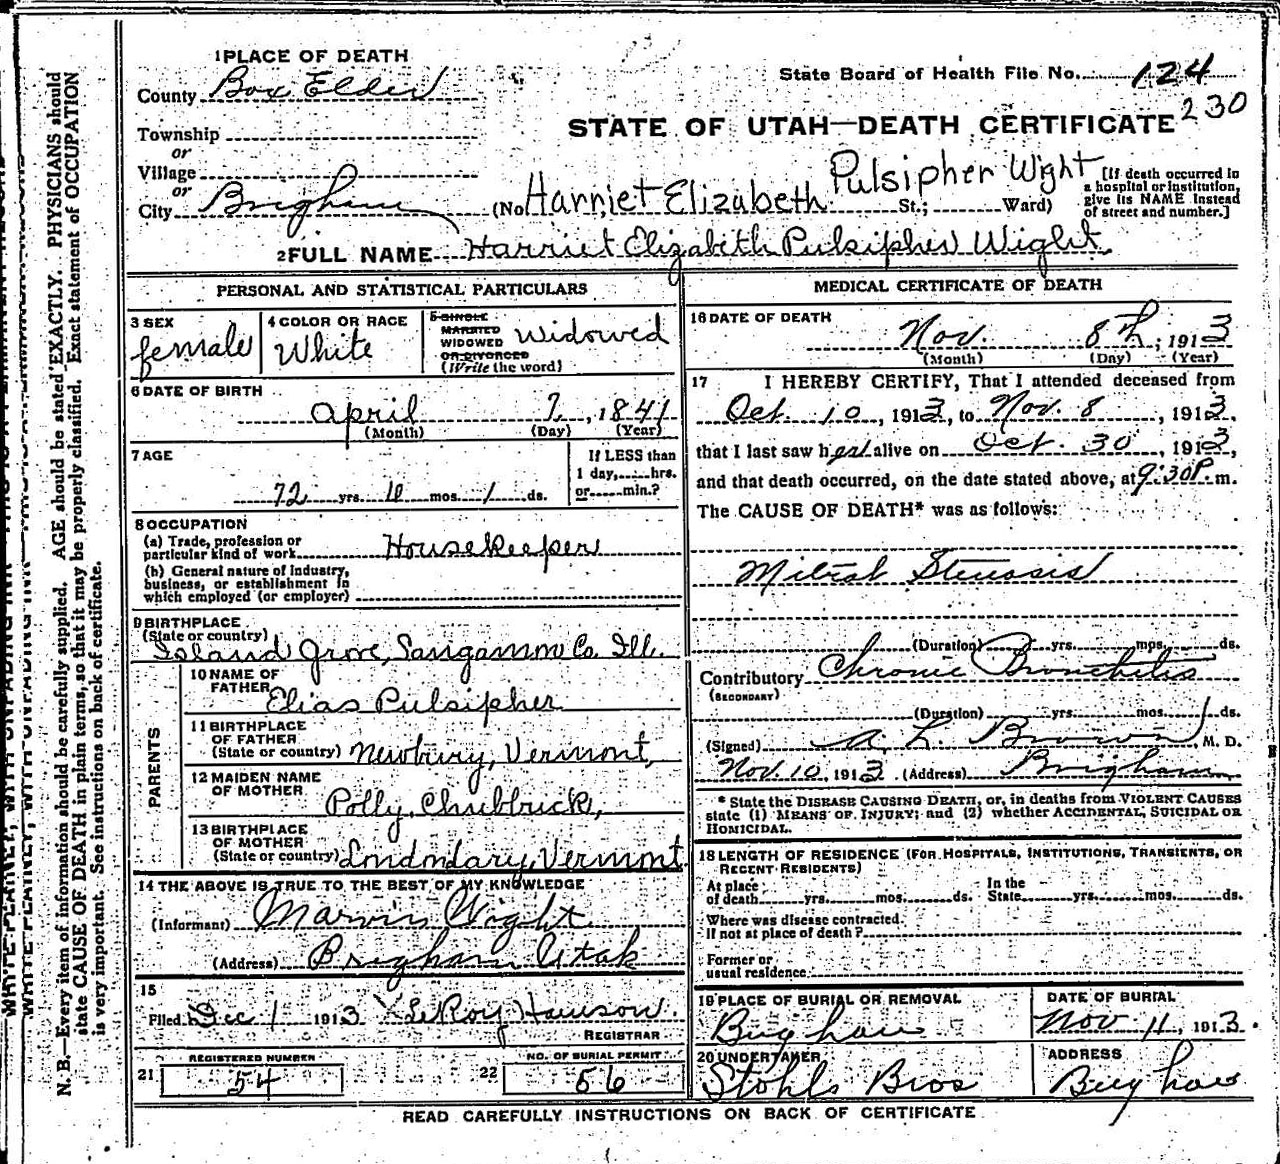 1 PLACE OF DEATH
County Box Elder
Township
or
Village
or
City Brigham
State Board of Health File No. 124
230
STATE OF UTAH—DEATH CERTIFICATE
(No. Harriet Elizabeth Pulsipher Wight St.; Ward)
[If death occurred in
a hospital or institution,
give its NAME instead
of street and number.]
2 FULL NAME Harriet Elizabeth Pulsipher Wight
PERSONAL AND STATISTICAL PARTICULARS
3 SEX
female
4 COLOR OR RACE
White
5 SINGLE
MARRIED
WIDOWED
OR DIVORCED
(Write the word)
Widowed
6 DATE OF BIRTH
April 7, 1841
(Month) (Day) (Year)
7 AGE
72 yrs. 10 mos. 1 ds.
If LESS than
1 day, hrs.
or min.?
8 OCCUPATION
(a) Trade, profession or
particular kind of work Housekeeper
(b) General nature of industry,
business, or establishment in
which employed (or employer)
9 BIRTHPLACE
(State or country)
Island Grove, Sangamon Co. Ill.
PARENTS
10 NAME OF
FATHER
Elias Pulsipher
11 BIRTHPLACE
OF FATHER
(State or country) Newbury, Vermont,
12 MAIDEN NAME
OF MOTHER
Polly Chubbuck,
13 BIRTHPLACE
OF MOTHER
(State or country) Londondary, Vermont.
14 THE ABOVE IS TRUE TO THE BEST OF MY KNOWLEDGE
(Informant) Marvin Wight
(Address) Brigham Utah
15
Filed Dec 1 1913 LeRoy Hanson
REGISTRAR
REGISTERED NUMBER
21 54
NO. OF BURIAL PERMIT
22 56
MEDICAL CERTIFICATE OF DEATH
16 DATE OF DEATH
Nov. 8th, 1913
(Month) (Day) (Year)
17 I HEREBY CERTIFY, That I attended deceased from
Oct. 10, 1913, to Nov. 8, 1913,
that I last saw her alive on Oct. 30, 1913,
and that death occurred, on the date stated above, at 9:30P. m.
The CAUSE OF DEATH* was as follows:
Mitral Stenosis
(Duration) yrs. mos. ds.
Contributory Chronic Bronchitis
(SECONDARY)
(Duration) yrs. mos. ds.
(Signed) A. L. Brown, M. D.
Nov. 10, 1913 (Address) Brigham
* State the DISEASE CAUSING DEATH, or, in deaths from VIOLENT CAUSES
state (1) MEANS OF INJURY; and (2) whether ACCIDENTAL, SUICIDAL OR
HOMICIDAL.
18 LENGTH OF RESIDENCE (FOR HOSPITALS, INSTITUTIONS, TRANSIENTS, OR
RECENT RESIDENTS)
At place
of death yrs. mos. ds.
In the
State yrs. mos. ds.
Where was disease contracted
If not at place of death?
Former or
usual residence
19 PLACE OF BURIAL OR REMOVAL
Brigham
DATE OF BURIAL
Nov. 11, 1913.
20 UNDERTAKER
Stohls Bros
ADDRESS
Brigham
READ CAREFULLY INSTRUCTIONS ON BACK OF CERTIFICATE
N. B.—Every item of information should be carefully supplied. AGE should be stated EXACTLY. PHYSICIANS should
state CAUSE OF DEATH in plain terms, so that it may be properly classified. Exact statement of OCCUPATION
is very important. See instructions on back of certificate.